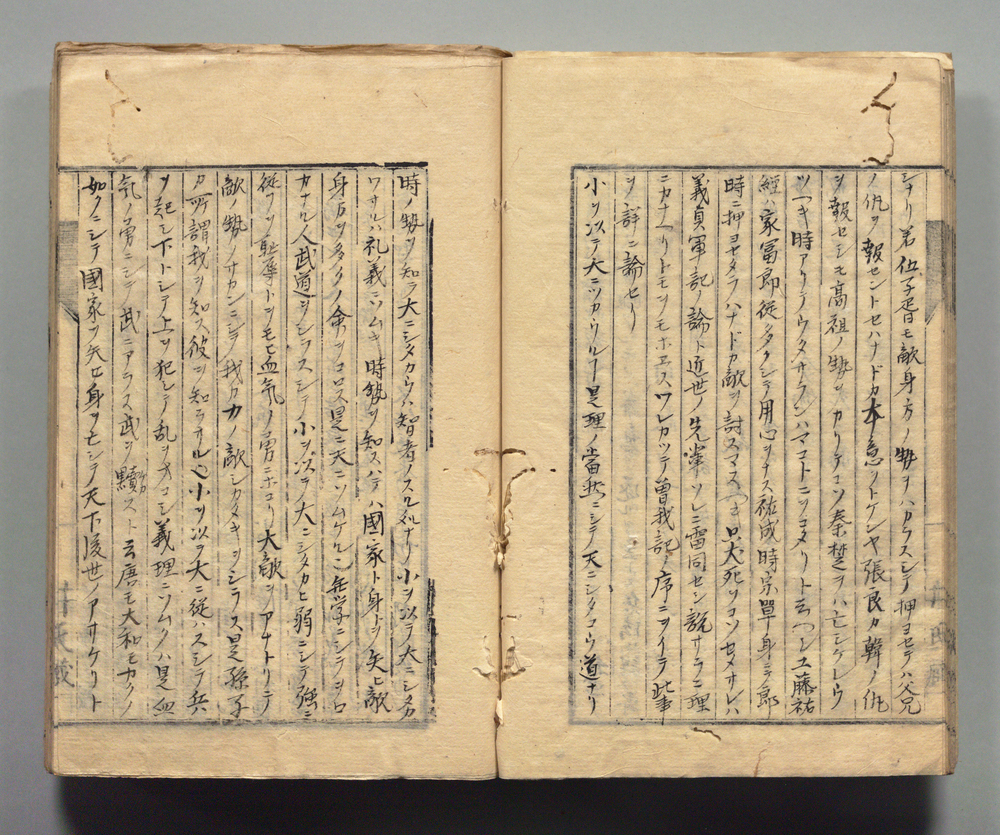 シナリ若伍子胥モ敵身方ノ勢ヲハカラスシテ押ヨセテハ父兄
ノ仇ヲ報セントセハナドカ本意ヲトケンヤ張良カ韓ノ仇
ヲ報セシモ高祖ノ勢ヲカリテコソ秦楚ヲハ亡シケレウ
ツヘキ時アリテウタサランハマコトニヲコタリト云ヘシ工藤祐
經ハ家冨郎從多クシテ用心ヲナス祐成時宗單身ニテ郎
時ニ押ヨセタラハナドカ敵ヲ討スマスヘキ只犬死ヲコソセメサレハ
義貞軍記ノ論ト近世ノ先輩ソレニ雷同セシ説サラニ理
ニカナヘリトモヲモホエスソレカツテ曽我記ノ序ニヲイテ此事
ヲ詳ニ論セリ
小ヲ以テ大ニツカウルハ是理ノ當然ニシテ天ニシタコウ道ナリ
時ノ勢ヲ知テ大ニシタカウハ智者ノスル処ナリ小ヲ以テ大ニシタカ
ワサルハ礼義ニソムキ時勢ヲ知スハテハ國家ト身トヲ失ヒ敵
身方ヲ多クノ命ヲコロス是ニ天ニソムケル也無学ニシテヲロ
カナル人武道ヲシラスシテ小ヲ以テ大ニシタカヒ弱ニシテ強ニ
從フヲ恥辱トヲモヒ血氣ノ勇ニホコリ大敵ヲアナトリテ
敵ノ勢ノサカンニシテ我カ力ノ敵シカタキヲシラス是孫子
カ所謂我ヲ知ス彼ヲ知ラサル也小ヲ以テ大ニ從ハスシテ兵
ヲ起シ下トシテ上ヲ犯シテ乱ヲオコシ義理ニソムクハ是血
氣ノ勇ニシテ武ニアラス武ヲ黷スト云唐モ大和モカクノ
如クニシテ國家ヲ失ヒ身ヲ亡シテ天下後世ノアサケリト